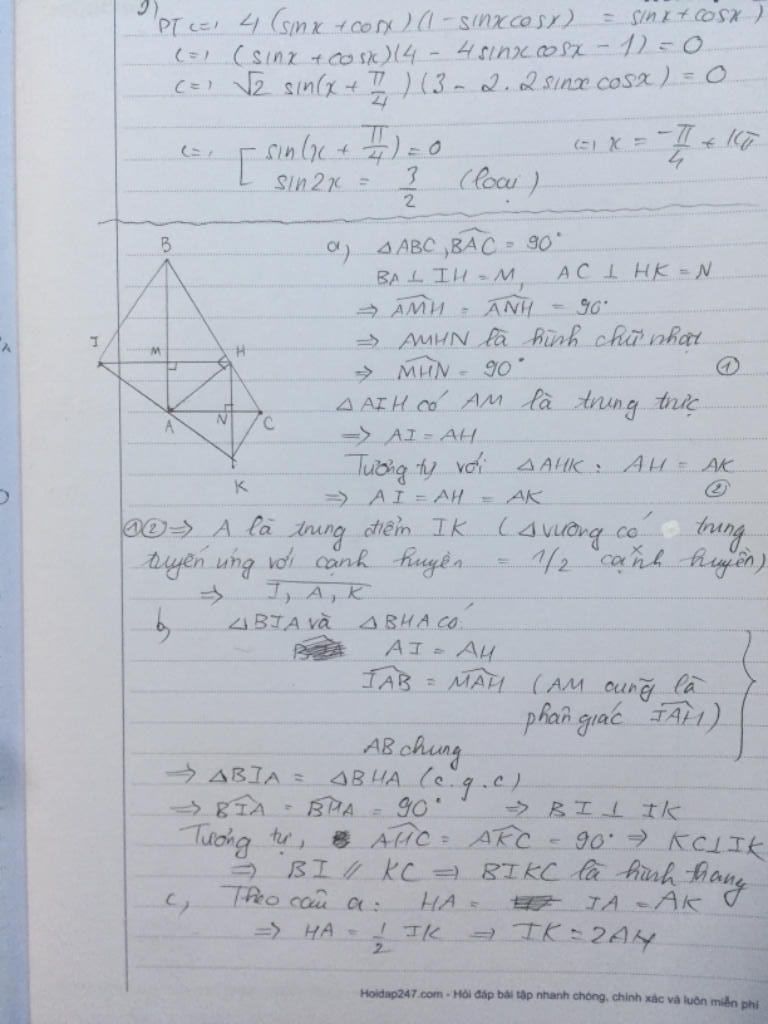 g)
PT <=> 4 (sinx + cosx)(1 - sinxcosx) = sinx + cosx)
<=> (sinx + cosx)(4 - 4sinxcosx - 1) = 0
<=> √2 sin(x + π/4)(3 - 2.2sinxcosx) = 0
<=> [ sin(x + π/4) = 0 <=> x = -π/4 + Kπ
sin2x = 3/2 (loại)
B
I
M
H
A
N
C
K
a) △ABC, \widehat{BAC} = 90°
BA ⊥ IH = M, AC ⊥ HK = N
⇒ \widehat{AMH} = \widehat{ANH} = 90°
⇒ AMHN là hình chữ nhật
⇒ \widehat{MHN} = 90° ①
△AIH có AM là trung trực
⇒ AI = AH
Tương tự với △AHK : AH = AK
⇒ AI = AH = AK ②
①② ⇒ A là trung điểm IK (△ vuông có trung
tuyến ứng với cạnh huyền = 1/2 cạnh huyền)
⇒ \overline{I, A, K}
b, △BIA và △BHA có
AI = AH
\widehat{IAB} = \widehat{MAH} (AM cũng là
phân giác \widehat{IAH})
AB chung
⇒ △BIA = △BHA (c.g.c)
⇒ \widehat{BIA} = \widehat{BHA} = 90° ⇒ BI ⊥ IK
Tương tự, \widehat{AHC} = \widehat{AKC} = 90° ⇒ KC ⊥ IK
⇒ BI // KC ⇒ BIKC là hình thang
c, Theo câu a: HA = IA = AK
⇒ HA = 1/2 IK ⇒ IK = 2AH
Hoidap247.com - Hỏi đáp bài tập nhanh chóng, chính xác và luôn miễn phí